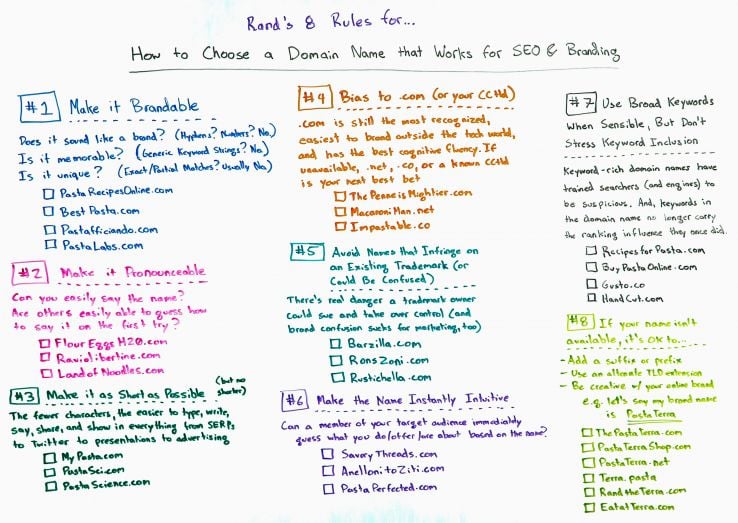 Rand's 8 Rules for...
How to Choose a Domain Name that Works for SEO & Branding
#1 Make it Brandable
Does it sound like a brand? (Hyphens? Numbers? No.)
Is it memorable? (Generic Keyword Strings? No.)
Is it unique? (Exact/Partial Matches? Usually No)
PastaRecipesOnline.com
BestPasta.com
Pastafficiando.com
PastaLabs.com
#2 Make it Pronounceable
Can you easily say the name?
Are others easily able to guess how
to say it on the first try?
FlourEggsH20.com
Raviolibertine.com
LandofNoodles.com
#3 Make it as Short as Possible (but no shorter)
The fewer characters, the easier to type, write,
say, share, and show in everything from SERPs
to Twitter to presentations to advertising
MyPasta.com
PastaSci.com
PastaScience.com
#4 Bias to .com (or your CCtld)
.com is still the most recognized,
easiest to brand outside the tech world,
and has the best cognitive fluency. If
unavailable, .net, .co, or a known CCtld
is your next best bet
ThePenneisMightier.com
MacaroniMan.net
Impastable.co
#5 Avoid Names that Infringe on
an Existing Trademark (or
Could Be Confused)
There's real danger a trademark owner
could sue and take over control (and
brand confusion sucks for marketing, too)
Barzilla.com
RonsZoni.com
Rustichella.com
#6 Make the Name Instantly Intuitive
Can a member of your target audience immediately
guess what you do/offer/are about based on the name?
SavoryThreads.com
AnellonitoZiti.com
PastaPerfected.com
#7 Use Broad Keywords
When Sensible, But Don't
Stress Keyword Inclusion
Keyword-rich domain names have
trained searchers (and engines) to
be suspicious. And, keywords in
the domain name no longer carry
the ranking influence they once did.
RecipesforPasta.com
BuyPastaOnline.com
Gusto.co
HandCut.com
#8 If your name isn't
available, it's OK to...
- Add a suffix or prefix
- Use an alternate TLD extension
- Be creative w/ your online brand
e.g. let's say my brand name
is PastaTerra
ThePastaTerra.com
PastaTerraShop.com
PastaTerra.net
Terra.pasta
RandtheTerra.com
EatatTerra.com